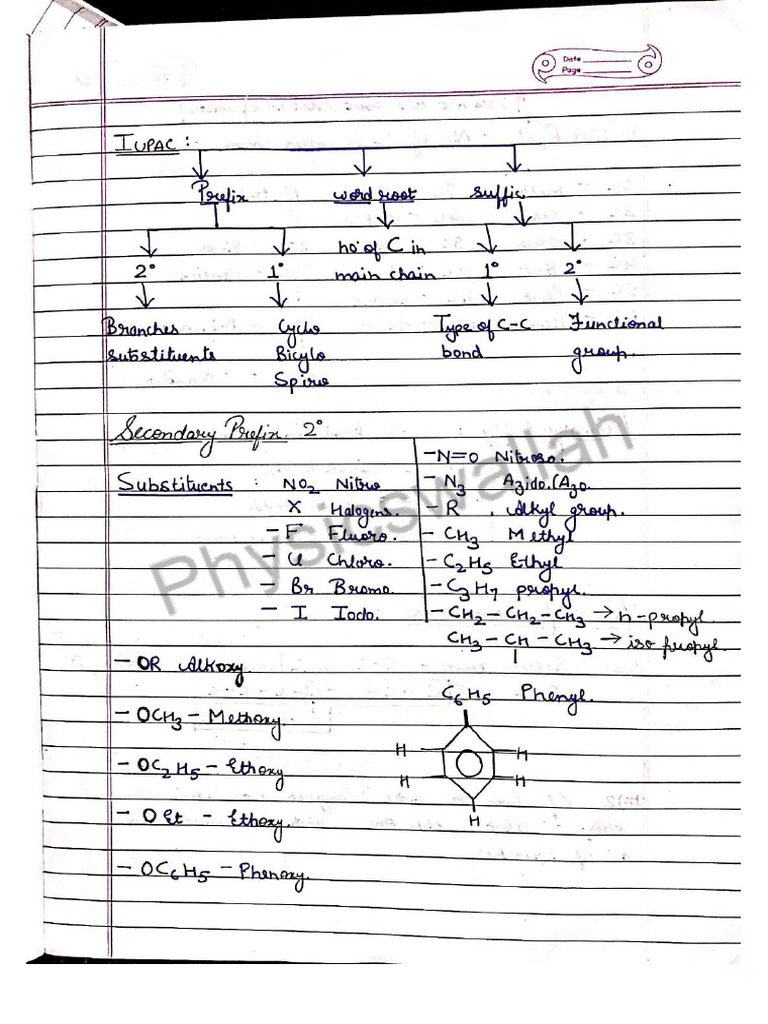 Date
Page
IUPAC :
Prefix word root suffix
2° 1° no of C in main chain 1° 2°
Branches substituents
Cyclo
Bicylo
Spiro
Type of C-C bond
Functional group.
Secondary Prefix. 2°
Substituents : NO2 Nitro
X Halogens
- F Fluoro.
- Cl Chloro.
- Br Bromo.
- I Iodo.
- N=O Nitroso.
- N3 Azido.(Azo.
- R . Alkyl group.
- CH3 Methyl
- C2H5 Ethyl
- C3H7 propyl.
- CH2 - CH2 - CH3 → n-propyl.
CH3 - CH - CH3 → iso propyl.
- OR Alkoxy
- OCH3 - Methoxy.
- OC2H5 - Ethoxy
- OEt - Ethoxy.
- OC6H5 - Phenoxy.
C6H5 Phenyl.
H H
H H
H
Physicswallah